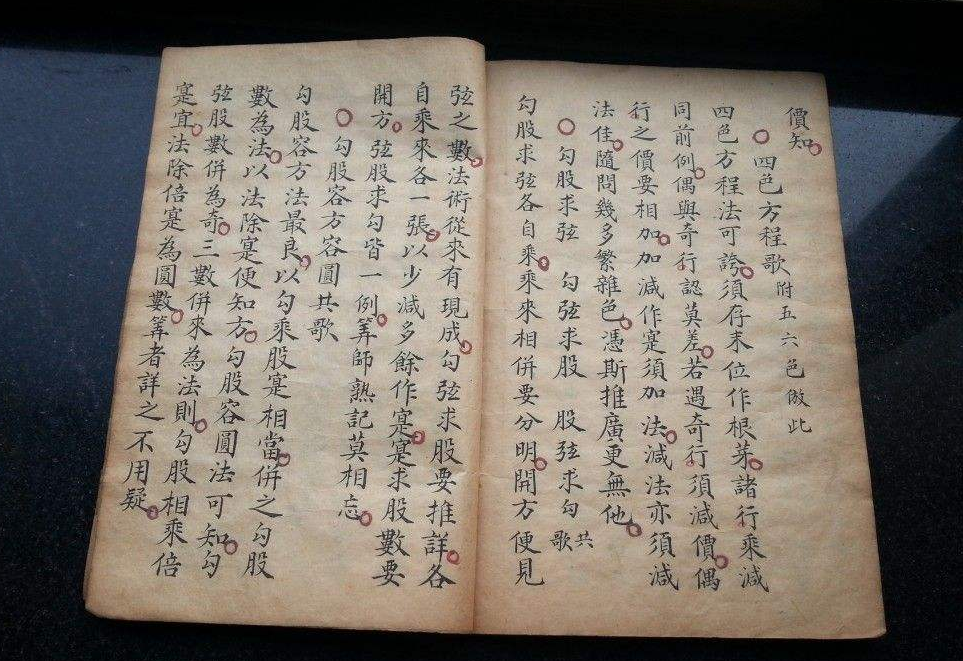 價知
四色方程歌附五六色倣此
四色方程法可誇須存末位作根芽諸行乘減
同前例偶與奇行認莫差若遇奇行須減價偶
行之價要相加加減作寔須加法減法亦須減
法佳隨問幾多繁雜色憑斯推廣更無他
勾股求弦 勾弦求股 股弦求勾共歌
勾股求弦各自乘乘來相併要分明開方便見
弦之數法術從來有現成勾弦求股要推詳各
自乘來各一張以少減多餘作寔寔求股數要
開方弦股求勾皆一例筭師熟記莫相忘
勾股容方容圓共歌
勾股容方法最良以勾乘股寔相當併之勾股
數為法以法除寔便知方勾股容圓法可知勾
弦股數併為奇三數併來為法則勾股相乘倍
寔宜法除倍寔為圓數筭者詳之不用疑